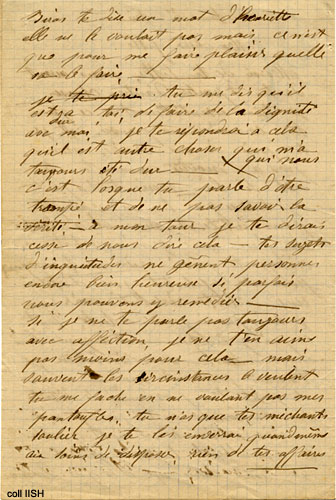 te dire un mot d'Henriette
elle ne le voulait pas mais ce n'est
que pour me faire plaisir quelle
va le faire
je te prie tu me dis qu'il
est dur a toi de faire de la dignité
avec moi je te reponderai a cela
qu'il est autre chose qui m'a
toujours eté dur qui nous
c'est lorsque tu parle d'être
trompé et de ne pas savoir la
verité a mon tour je te dirais
cesse de nous dire cela tes sujets
d'inquietudes ne gènent personnes
encore bien heureuse si parfois
nous pouvons y remedier
Si je ne te parle pas toujours
avec affection, je ne t'en aime
pas moins pour cela mais
souvent les circonstances le veulent
tu me fache en ne voulant pas mes
pantoufles, tu n'as que tes mechants
soulier je te les enverai quand même
aie soins de disposer rien de tes affaires
coll IISH